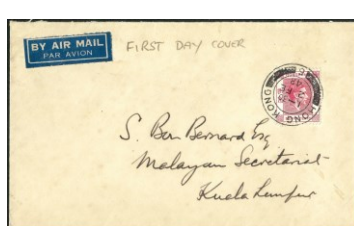 BY AIR MAIL
PAR AVION
FIRST DAY COVER
HONG KONG
S. Ben Bernard Esq
Malayan Secretariat
Kuala Lumpur